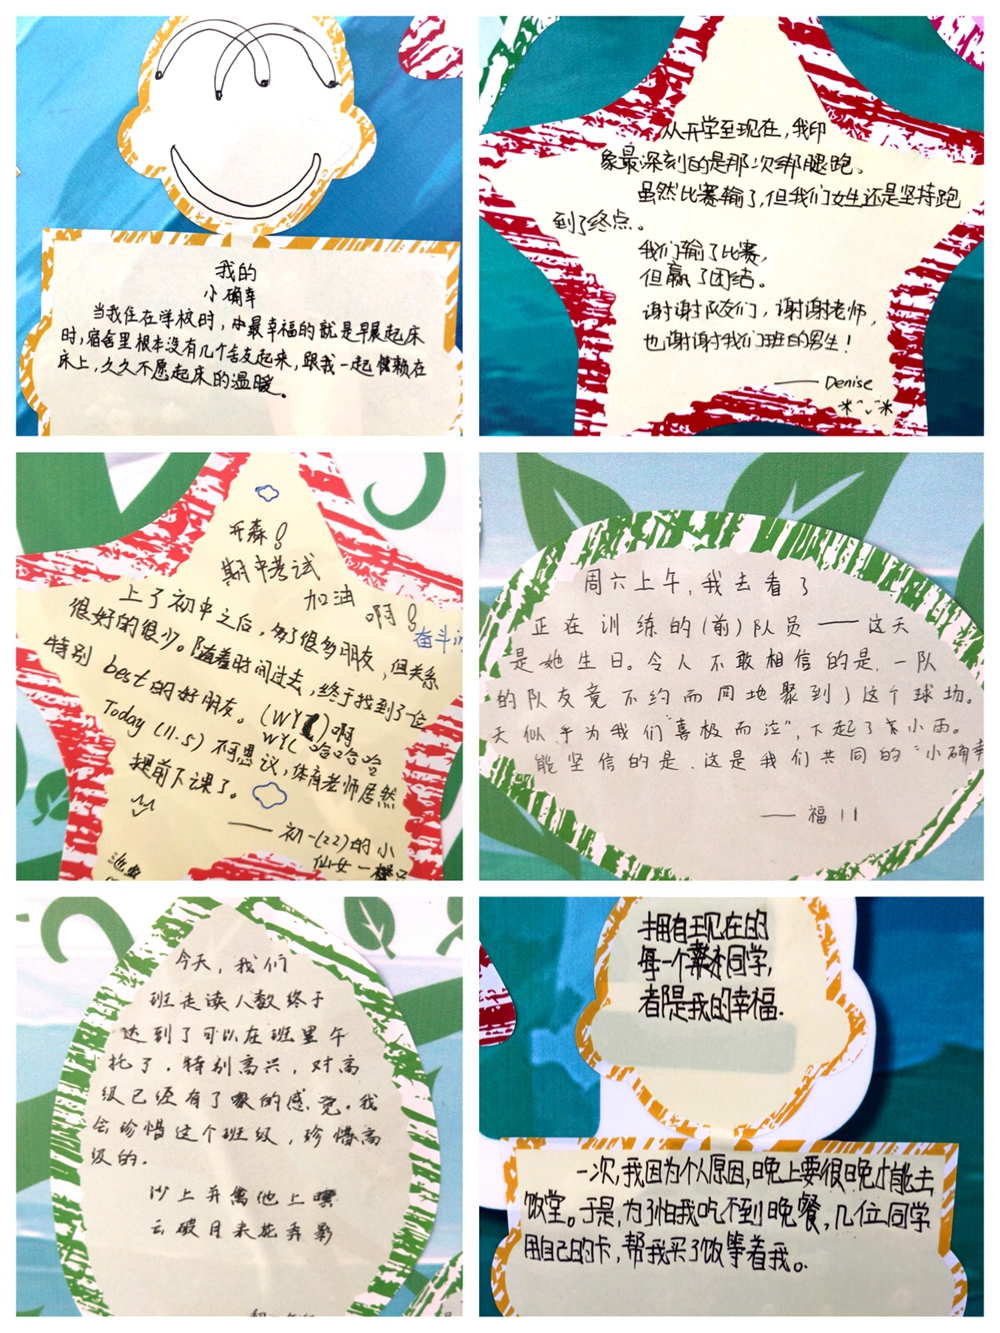 我的
小确幸
当我住在学校时，最幸福的就是早晨起床
时，宿舍里根本没有几个舍友起来，跟我一起赖在
床上，久久不愿起床的温暖。
从开学至现在，我印
象最深刻的是那次绑腿跑。
虽然比赛输了，但我们女生还是坚持跑
到了终点。
我们输了比赛，
但赢了团结。
谢谢队友们，谢谢老师，
也谢谢我们班的男生！
—— Denise
开森！
期中考试
加油
啊！
奋斗
上了初中之后，多了很多朋友，但关系
很好的很少。随着时间过去，终于找到了一位
特别best的好朋友。(WY)啊
WYL 哈哈哈
Today (11.5) 不可思议，体育老师居然
提前下课了。
—— 初一(22)的小
仙女一橙
周六上午，我去看了
正在训练的(前)队员——这天
是她生日。令人不敢相信的是，一队
的队友竟不约而同地聚到了这个球场。
天似乎为我们"喜极而泣"，下起了小雨。
能坚信的是，这是我们共同的"小确幸
—— 福11
今天，我们
班走读人数终于
达到了可以在班里午
托了，特别高兴，对高
级已经有了家的感觉。我
会珍惜这个班级，珍惜高
级的。
沙上并禽池上暝
云破月来花弄影
拥有现在的
每一个同学，
都是我的幸福.
一次，我因为个人原因，晚上要很晚才能去
饭堂。于是，为了怕我吃不到晚餐，几位同学
用自己的卡，帮我买了饭等着我。